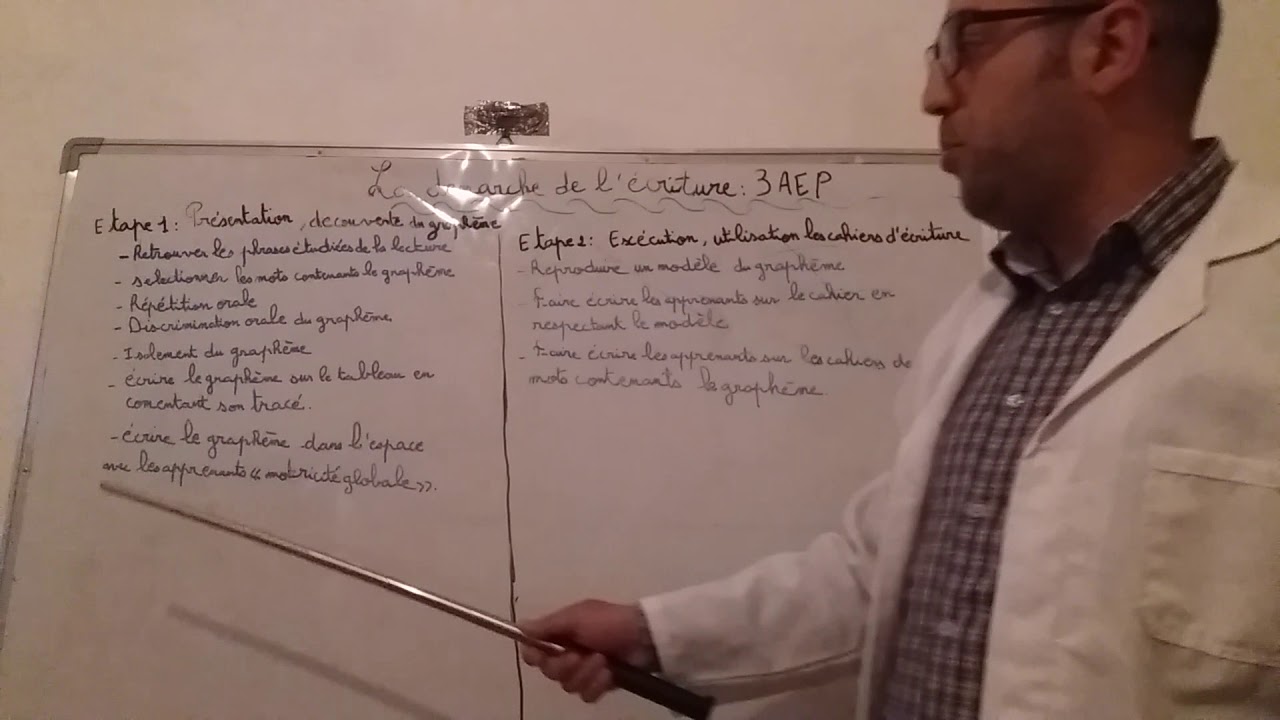 La démarche de l'écriture : 3 AEP
Etape 1 : Présentation, découverte du graphème
- Retrouver les phrases étudiées de la lecture
- selectionner les mots contenants le graphème
- Répétition orale
- Discrimination orale du graphème.
- Isolement du graphème
- écrire le graphème sur le tableau en
comentant son tracé.
- écrire le graphème dans l'espace
avec les apprenants « motricité globale ».
Etape 2 : Exécution, utilisation les cahiers d'écriture
- Reproduire un modèle du graphème
- Faire écrire les apprenants sur le cahier en
respectant le modèle
- Faire écrire les apprenants sur les cahiers de
mots contenants le graphème.